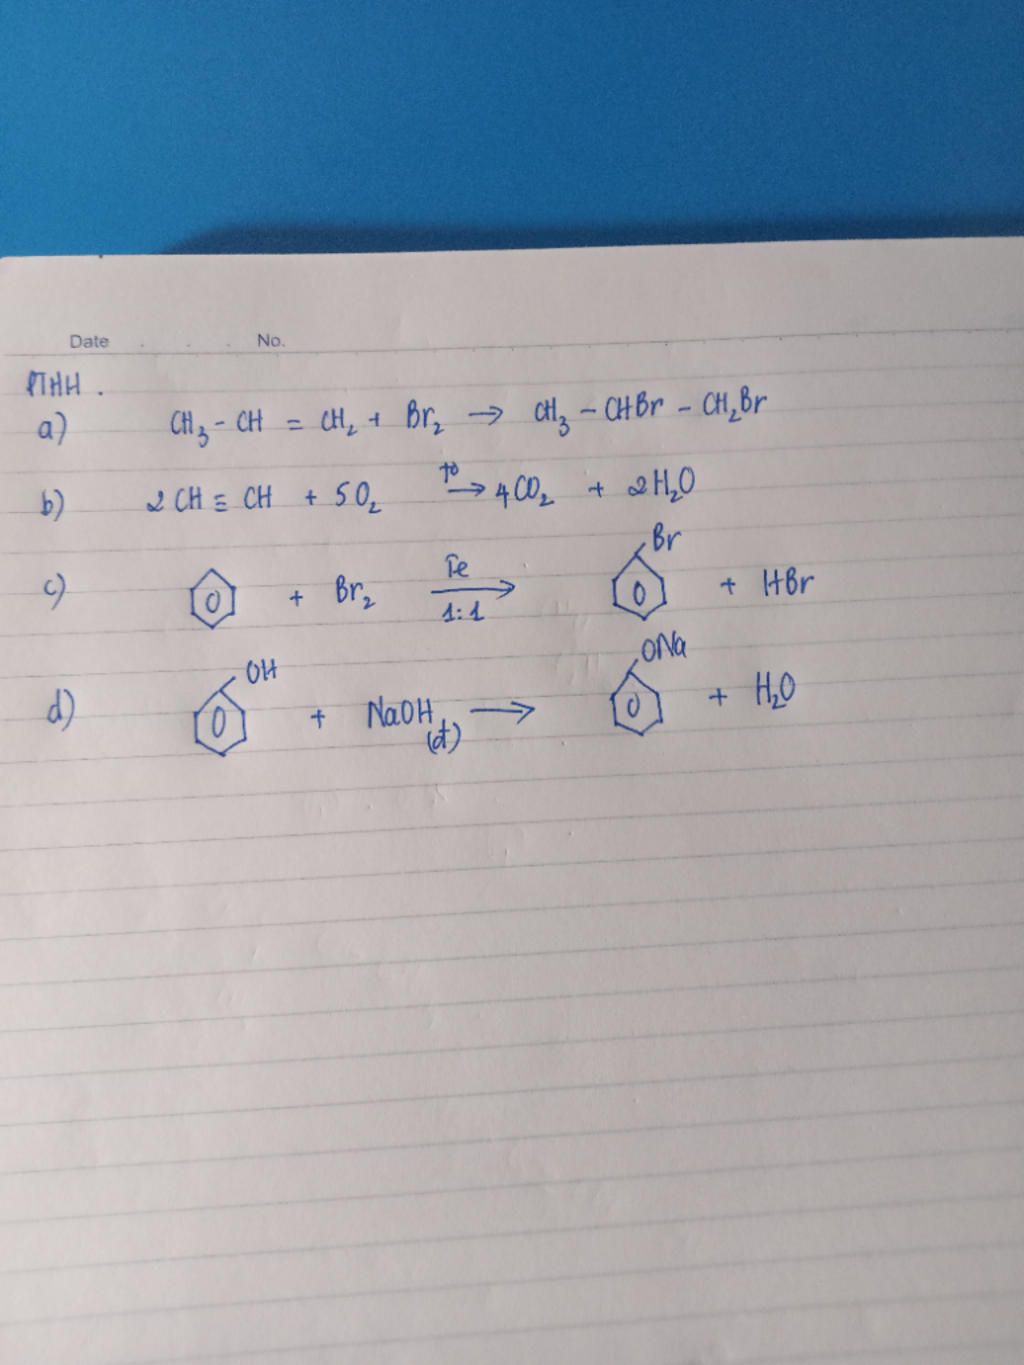 Date No.
PTHH.
a) CH₃ - CH = CH₂ + Br₂ → CH₃ - CHBr - CH₂Br
b) 2CH ≡ CH + 5O₂ t° → 4CO₂ + 2H₂O
c) + Br₂ Fe → 1:1 Br + HBr
d) OH + NaOH (đ) → ONa + H₂O